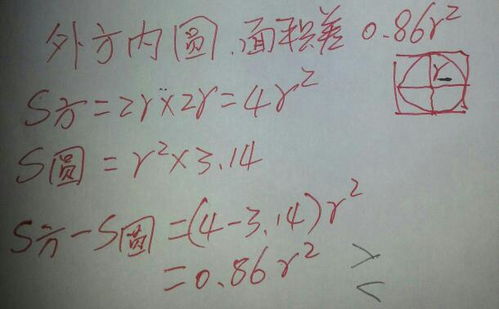 外方内圆.面积差 0.86r²
S方=2r×2r=4r²
r
S圆=r²×3.14
S方-S圆=(4-3.14)r²
=0.86r²
>
<